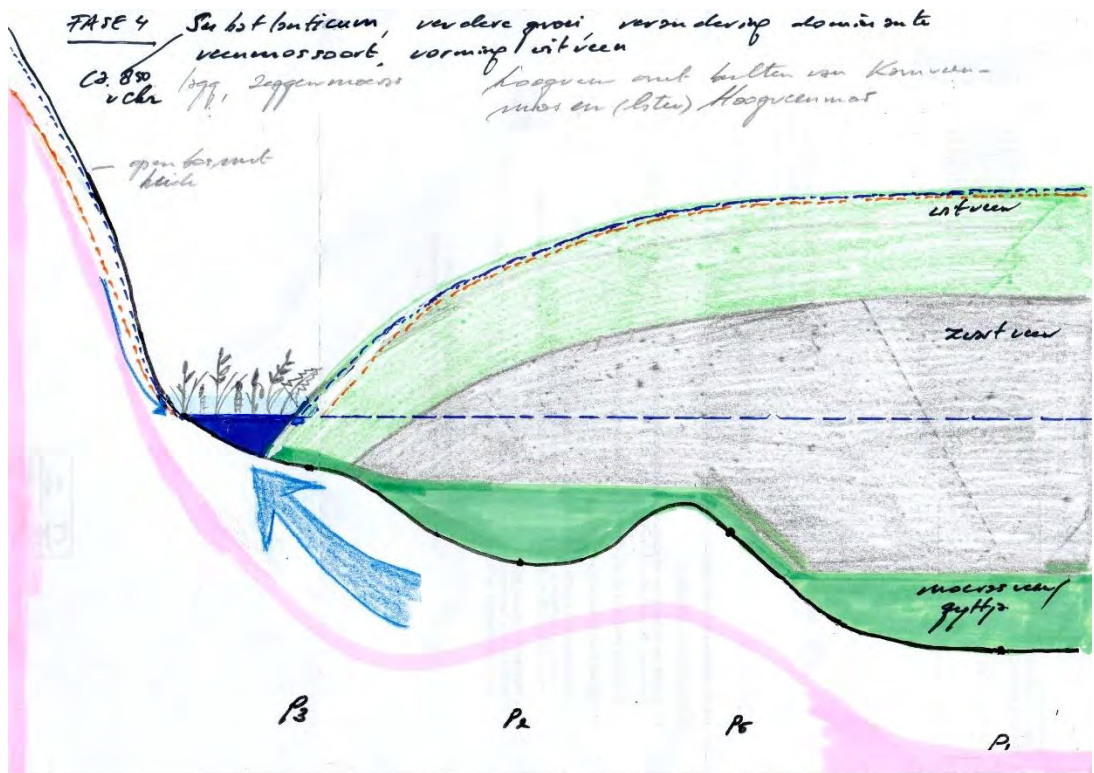 FASE 4 Subatlanticum, verdere groei, verandering dominante
veenmossoort, vorming witveen
Ca. 850
v chr
lagg, zeggenmoeras
hoogveen met bulten van Kamveen-
mos en (later) Hoogveenmos
open bos met
heide
witveen
zwartveen
moerasveen/
gyttja
P3
P2
P5
P1